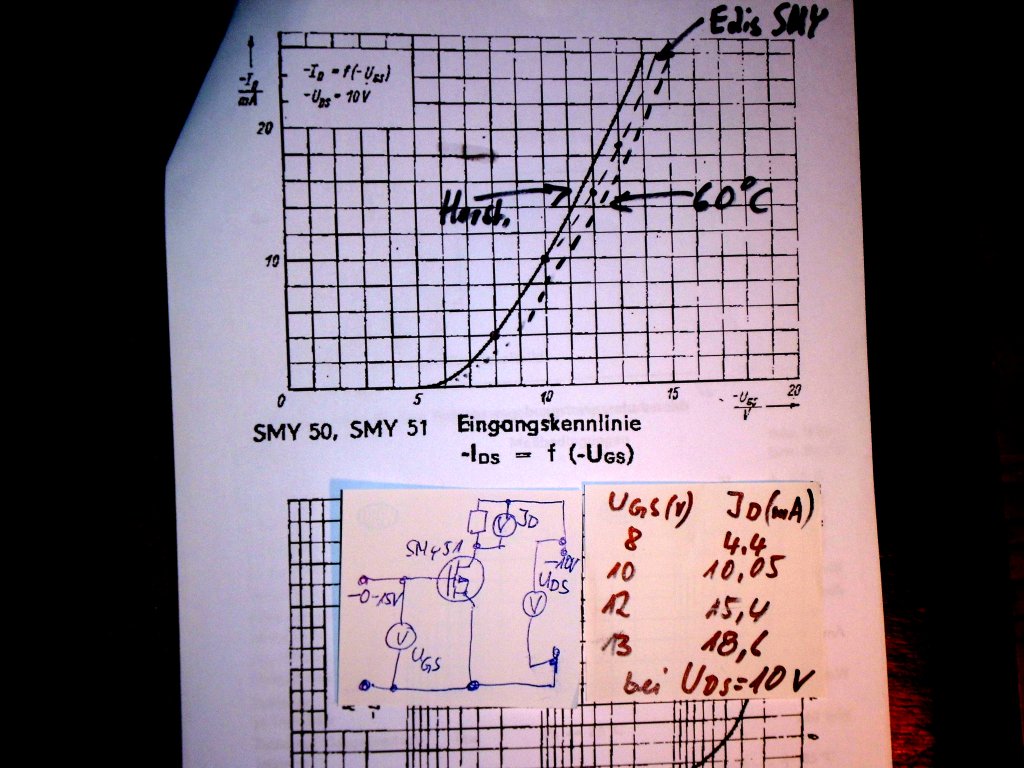 Edis SMY
-ID
mA
-ID = f(-UGS)
-UDS = 10V
20
Herst.
60°C
10
0
5
10
15
20
-UGS
V
SMY 50, SMY 51 Eingangskennlinie
-IDS = f (-UGS)
V
JD
SMY51
-10V
UDS
V
-0-15V
V
UGS
UGS(V) JD(mA)
8 4.4
10 10,05
12 15,4
13 18,6
bei UDS=10V